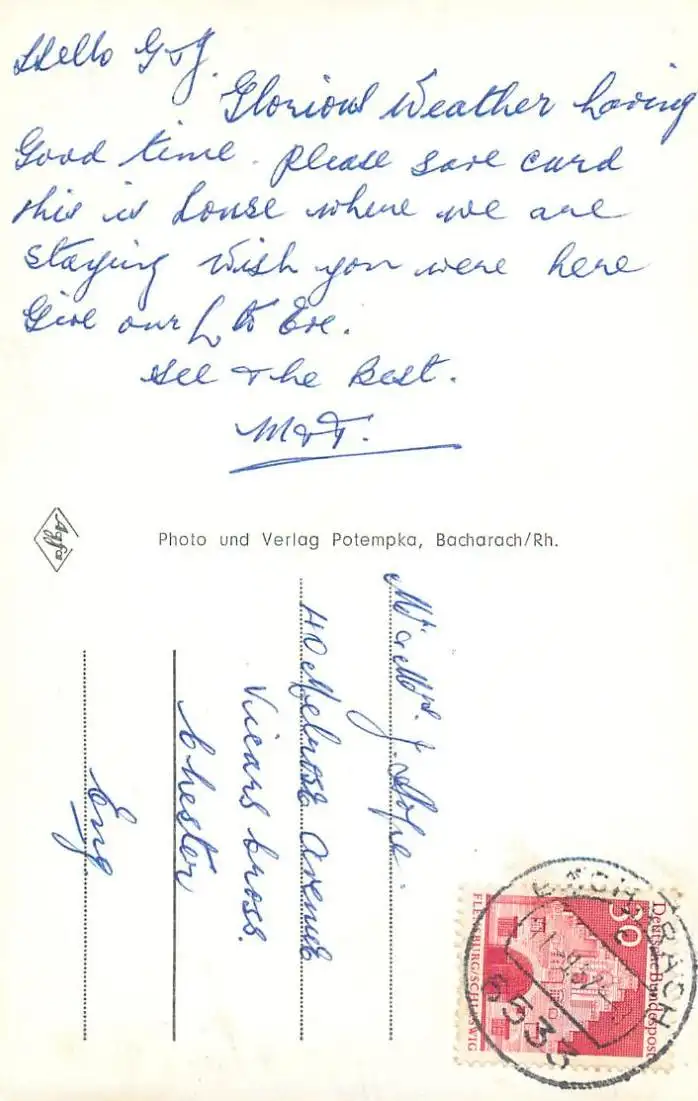 Hello G & J.
Glorious Weather having
Good time. Please save card
this is house where we are
staying Wish you were here
Give our L to Eve.
All the Best.
M & F.
Agfa
Photo und Verlag Potempka, Bacharach/Rh.
Mr & Mrs. J. Hope.
40 Melrose Avenue
Vicars Cross.
Chester
Eng
30
Deutsche Bundespost
FLENSBURG/SCHLESWIG
BACHARACH
6533